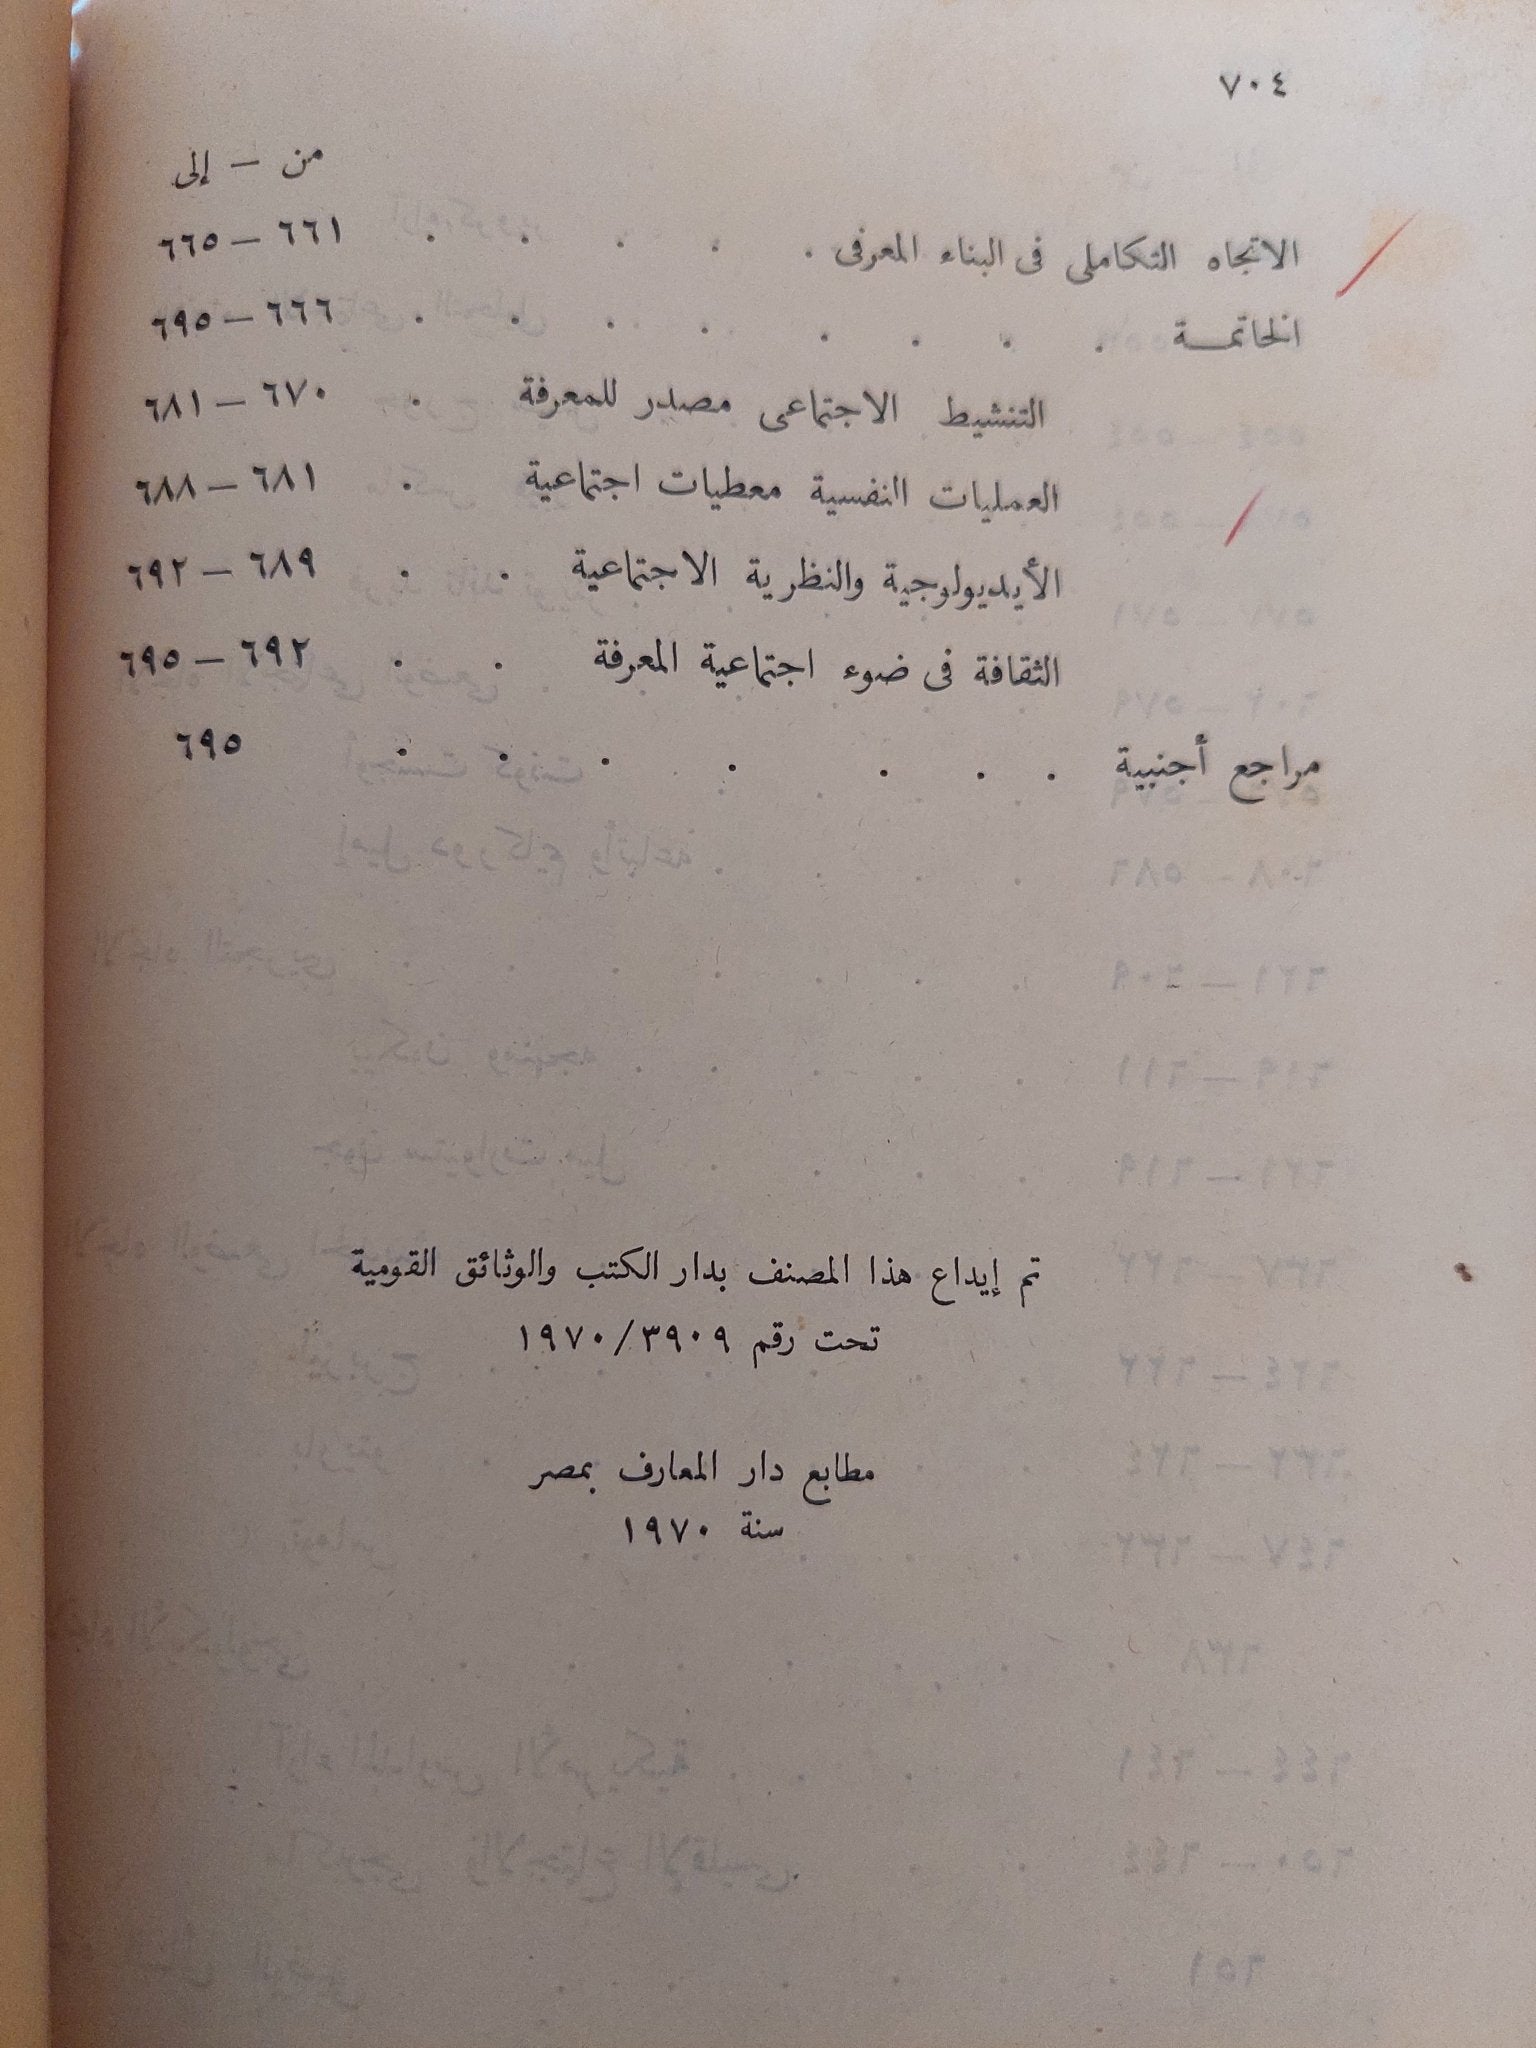 ٧٠٤
من — إلى
الاتجاه التكاملى فى البناء المعرفى . . . . . ٦٦١ — ٦٦٥
الخاتمـــة . . . . . . . . ٦٦٦ — ٦٩٥
التنشيط الاجتماعى مصدر للمعرفة . ٦٧٠ — ٦٨١
العمليات النفسية معطيات اجتماعية . ٦٨١ — ٦٨٨
الأيديولوجية والنظرية الاجتماعية . . ٦٨٩ — ٦٩٢
الثقافة فى ضوء اجتماعية المعرفة . . ٦٩٢ — ٦٩٥
مراجع أجنبية . . . . . . . ٦٩٥
تم إيداع هذا المصنف بدار الكتب والوثائق القومية
تحت رقم ٣٩٠٩/١٩٧٠
مطابع دار المعارف بمصر
سنة ١٩٧٠